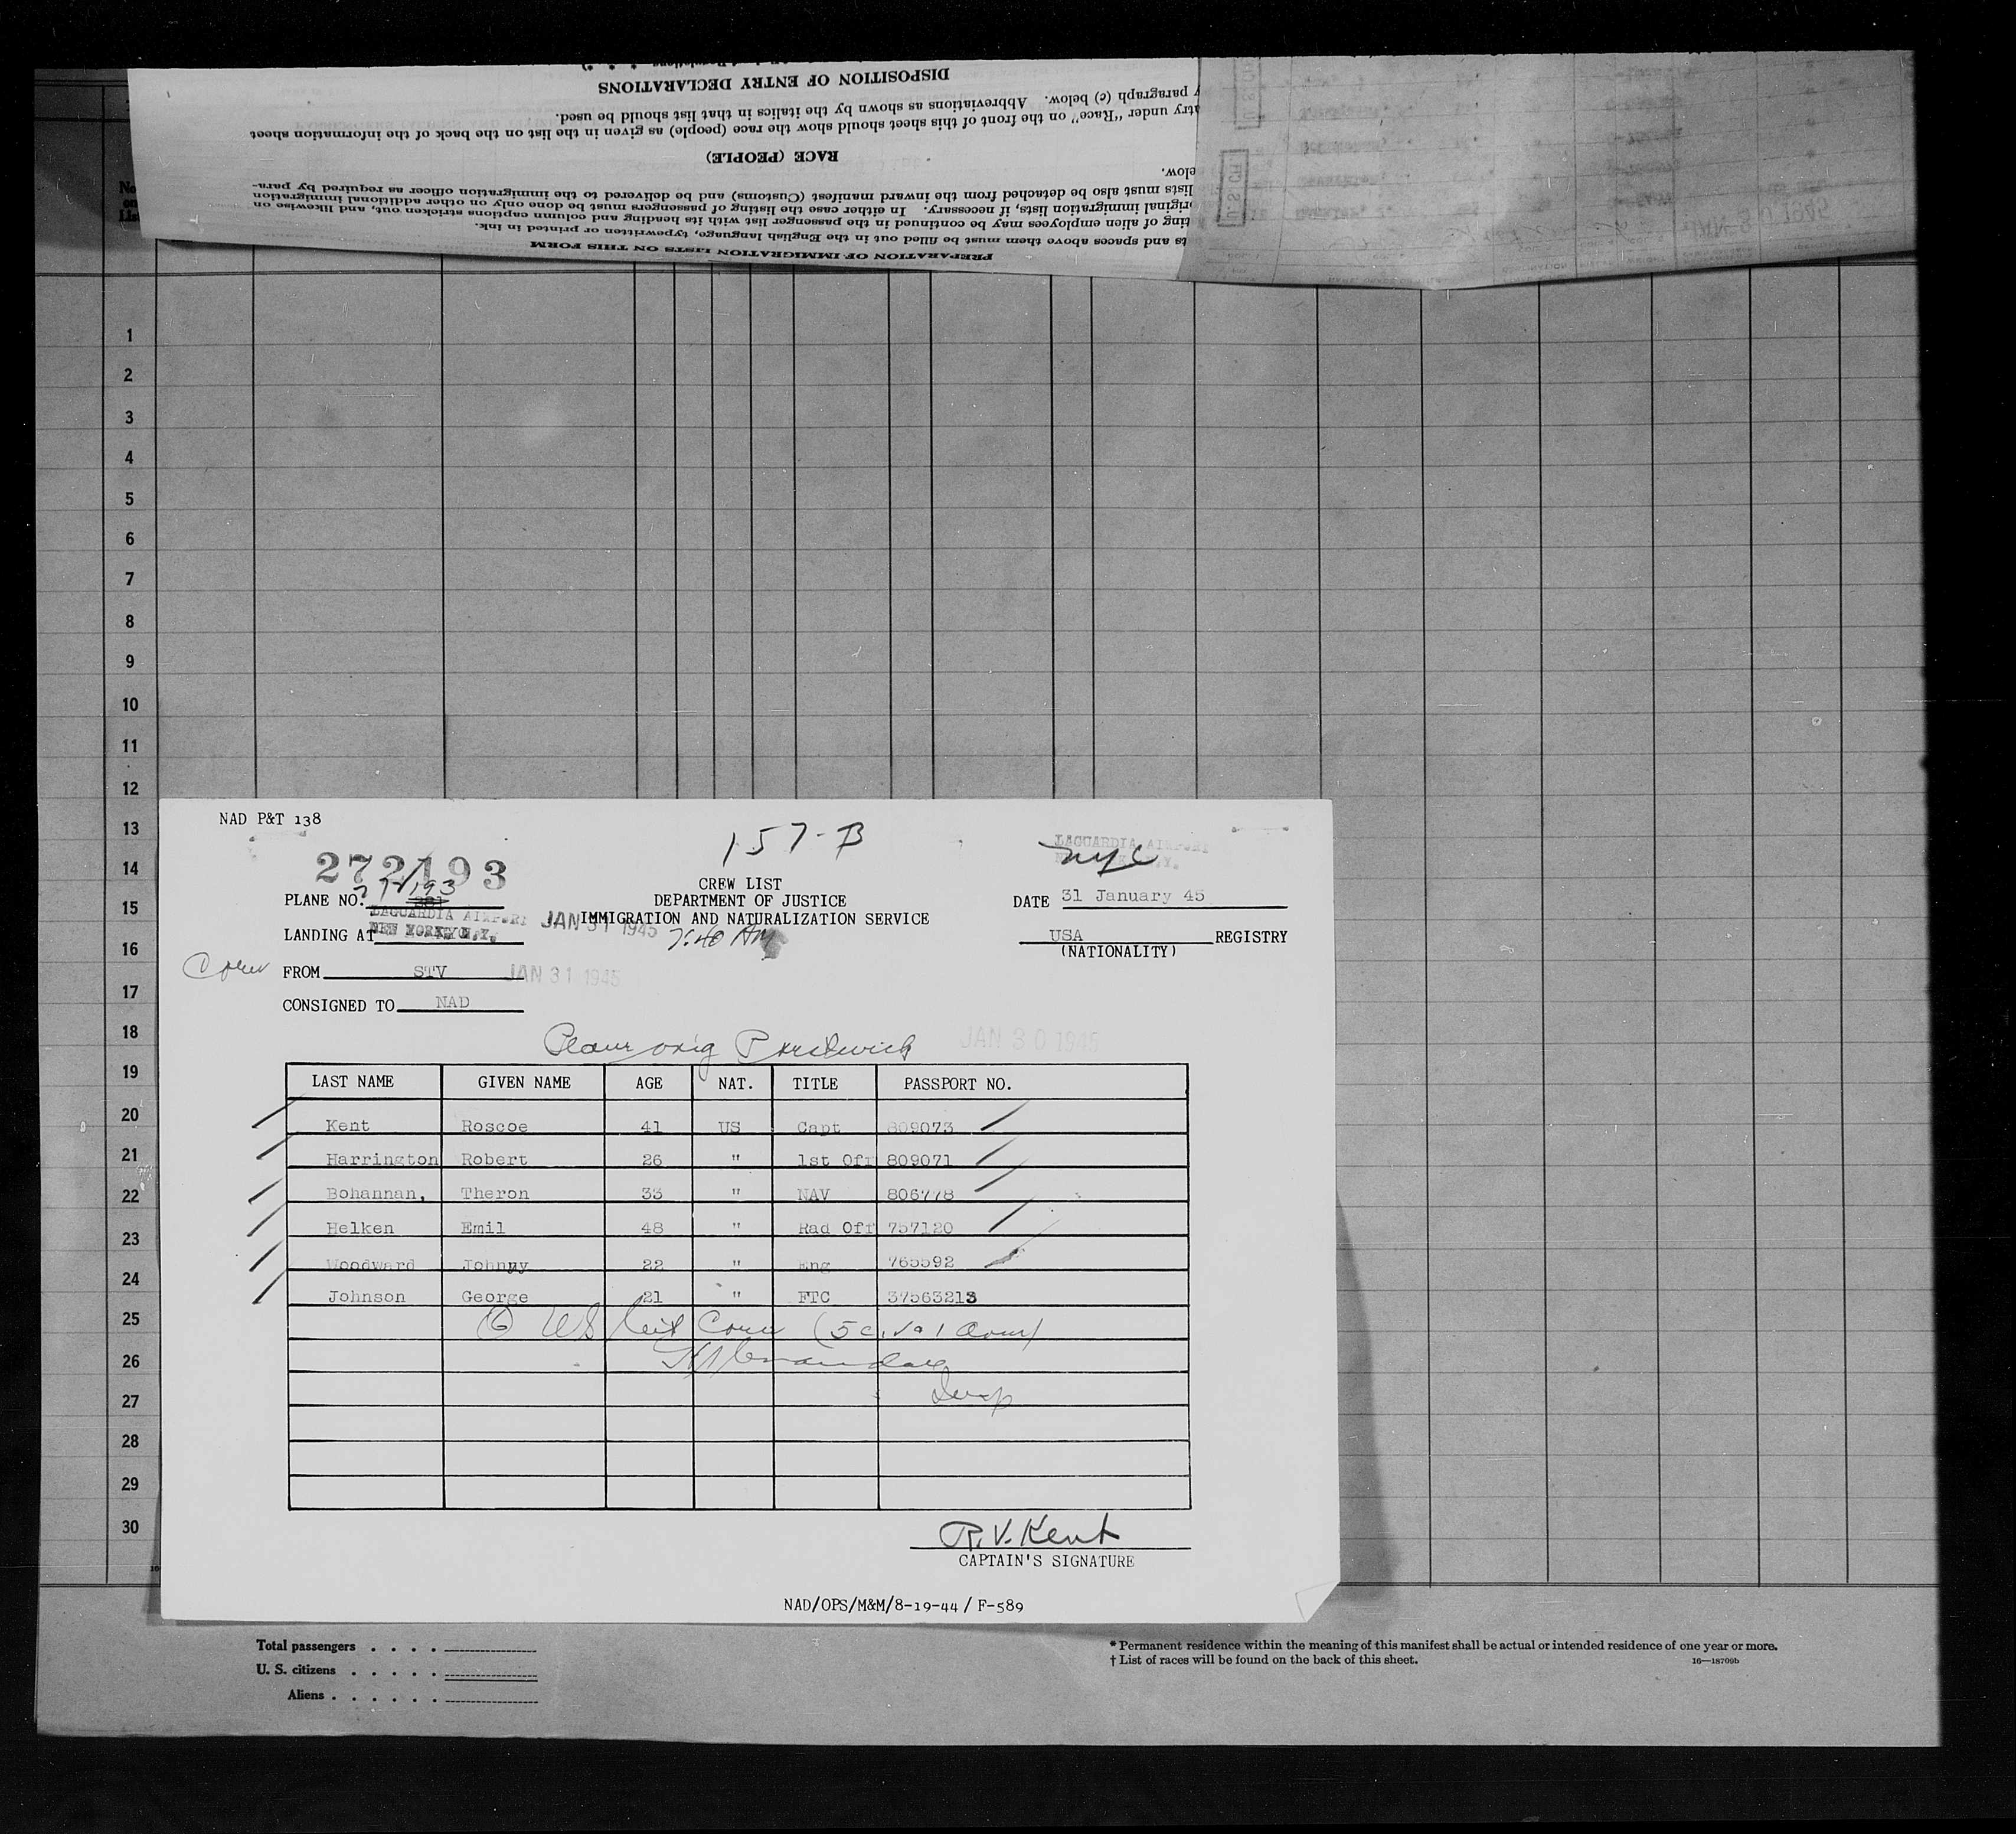 DISPOSITION OF ENTRY DECLARATIONS
y paragraph (c) below. Abbreviations as shown by the italics in that list should be used.
try under "Race" on the front of this sheet should show the race (people) as given in the list on the back of the information sheet
RACE (PEOPLE)
elow.
lists must also be detached from the inward manifest (Customs) and be delivered to the immigration officer as required by para-
original immigration lists, if necessary. In either case the listing of passengers must be done only on other additional immigration
ting of alien employees may be continued in the passenger list with its heading and column captions stricken out, and likewise on
ts and spaces above them must be filled out in the English language, typewritten or printed in ink.
PREPARATION OF IMMIGRATION LISTS ON THIS FORM
No.
on
List
1
2
3
4
5
6
7
8
9
10
11
12
13
14
15
16
17
18
19
20
21
22
23
24
25
26
27
28
29
30
NAD P&T 138
157-B
LAGUARDIA AIRPORT
NYC
272193
CREW LIST
PLANE NO. 272193
DEPARTMENT OF JUSTICE
DATE 31 January 45
LAGUARDIA AIRPORT JAN 31 1945
IMMIGRATION AND NATURALIZATION SERVICE
LANDING AT NEW YORK, N.Y. 7:40 AM
USA REGISTRY
(NATIONALITY)
FROM STV JAN 31 1945
CONSIGNED TO NAD
Plane orig Prestwick JAN 30 1945
LAST NAME GIVEN NAME AGE NAT. TITLE PASSPORT NO.
Kent Roscoe 41 US Capt 809073
Harrington Robert 26 " 1st Off 809071
Bohannan, Theron 33 " NAV 806778
Helken Emil 48 " Rad Off 757120
Woodward Johnny 22 " Eng 765592
Johnson George 21 " FTC 37563213
6 US (5 civ 1 Army)
Insp
R.V. Kent
CAPTAIN'S SIGNATURE
NAD/OPS/M&M/8-19-44/F-589
Total passengers . . . .
U. S. citizens . . . . .
Aliens . . . . . .
* Permanent residence within the meaning of this manifest shall be actual or intended residence of one year or more.
† List of races will be found on the back of this sheet. 16—18709b